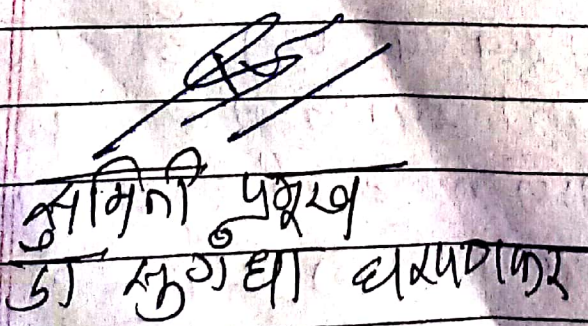 समिती प्रमुख
डॉ सुगंधा घरपणकर